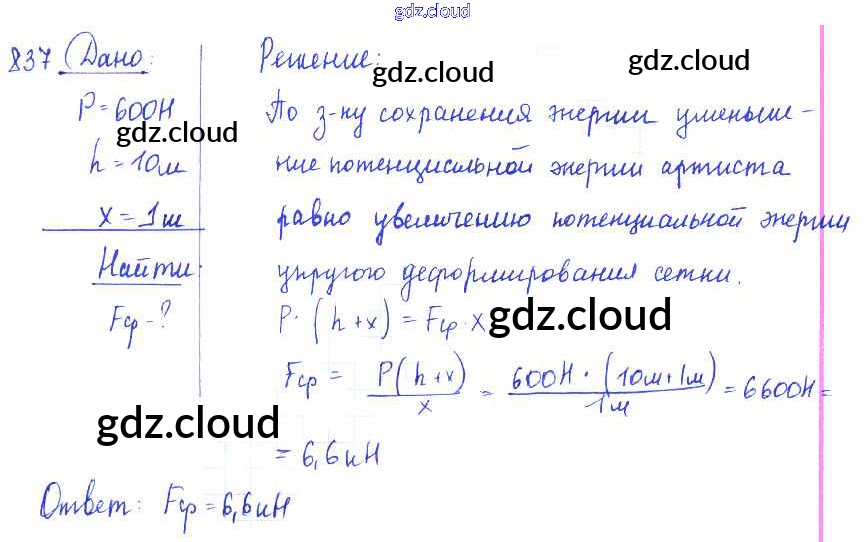 gdz.cloud
837 Дано:
P = 600Н
gdz.cloud
h = 10м
x = 1м
Найти:
Fср - ?
gdz.cloud
Решение:
gdz.cloud
gdz.cloud
По з-ну сохранения энергии уменьше-
ние потенциальной энергии артиста
равно увеличению потенциальной энергии
упругого деформирования сетки.
P · (h + x) = Fср · x
gdz.cloud
Fср = P(h+x) / x = 600Н · (10м + 1м) / 1м = 6600Н =
= 6,6кН
Ответ: Fср = 6,6кН